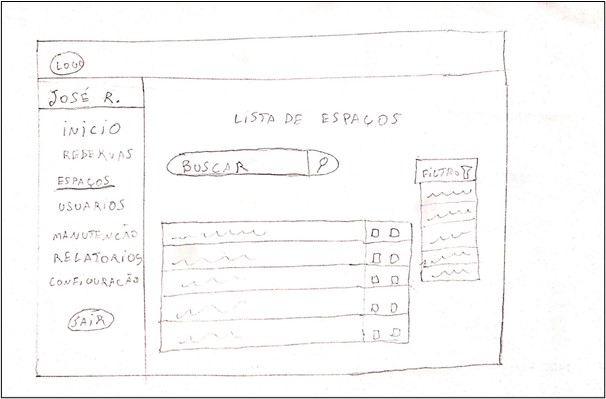 LOGO
JOSÉ R.
INICIO
RESERVAS
ESPAÇOS
USUARIOS
MANUTENCÃO
RELATORIOS
CONFIGURACÃO
SAIR
LISTA DE ESPAÇOS
BUSCAR
FILTRO